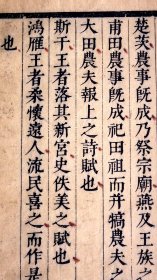 楚茨農事既成乃祭宗廟燕及王族之
甫田農事既成祀田祖而并犒農夫之
大田農夫報上之詩賦也
斯干王者落其新宮史佚美之賦也
鴻雁王者柔懷遠人流民喜之而作是
也